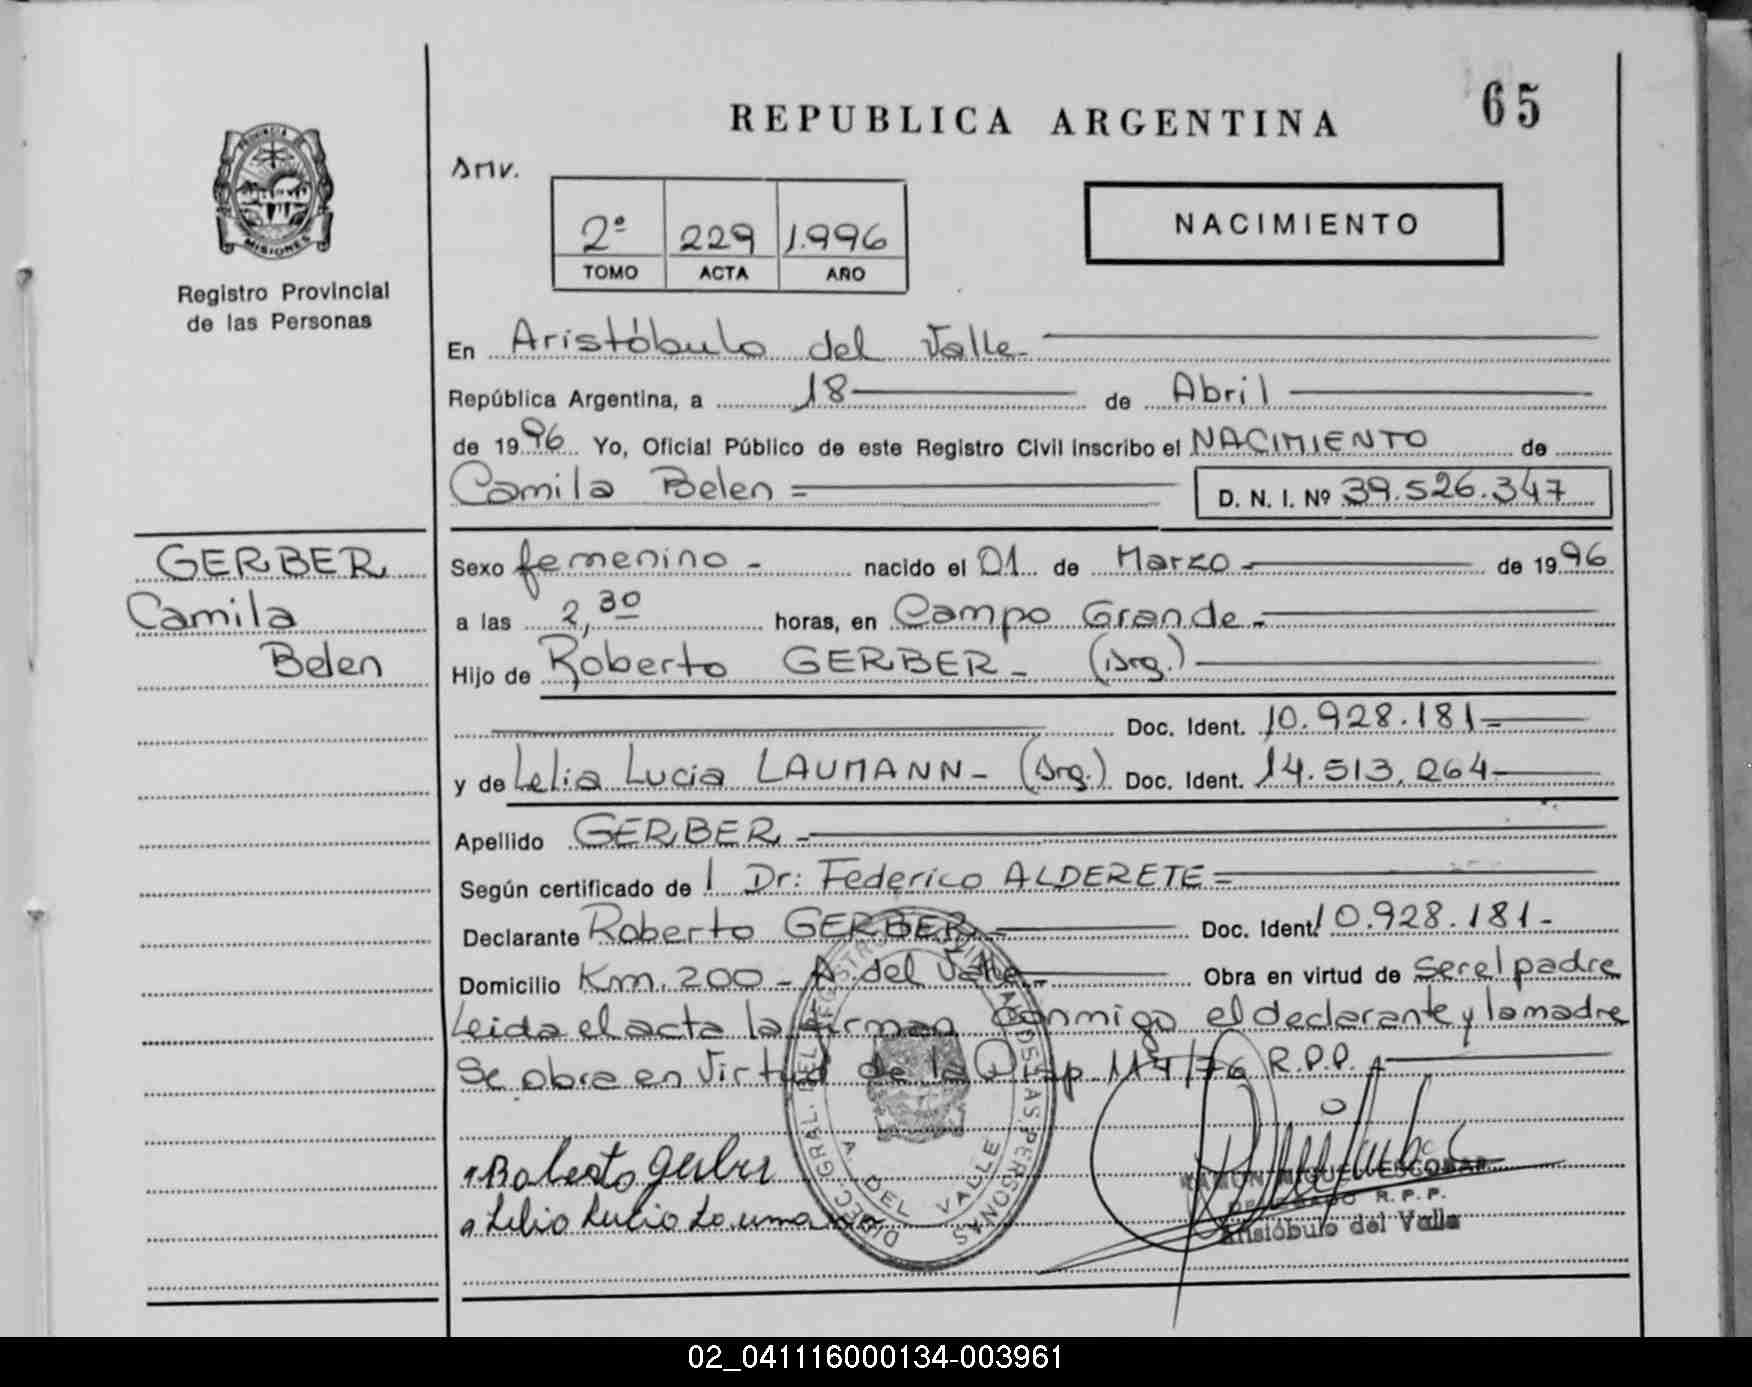 REPUBLICA ARGENTINA
65
PROVINCIA
MISIONES
Registro Provincial
de las Personas
Amv.
2º 229 1.996
TOMO ACTA AÑO
NACIMIENTO
En Aristóbulo del Valle-
República Argentina, a 18 de Abril
de 1996 Yo, Oficial Público de este Registro Civil inscribo el NACIMIENTO de
Camila Belen =
D. N. I. Nº 39.526.347
GERBER
Camila
Belen
Sexo femenino - nacido el 01 de Marzo - de 1996
a las 2,30 horas, en Campo Grande -
Hijo de Roberto GERBER - (Arg.)
Doc. Ident. 10.928.181 -
y de Lelia Lucia LAUMANN - (Arg.) Doc. Ident. 14.513.264
Apellido GERBER -
Según certificado de l Dr: Federico ALDERETE =
Declarante Roberto GERBER - Doc. Ident. 10.928.181 -
Domicilio Km. 200 - A. del Valle - Obra en virtud de ser el padre
Leida el acta la firman conmigo el declarante y la madre
Se obra en virtud de la Disp 114/76 R.P.P.
Roberto Gerber
Lelia Lucia Laumann
DIREC. GRAL. DEL REGISTRO PROVINCIAL DE LAS PERSONAS
A. DEL VALLE
RAMON MIGUEL ESCOBAR
DELEGADO R.P.P.
Aristóbulo del Valle
02_041116000134-003961